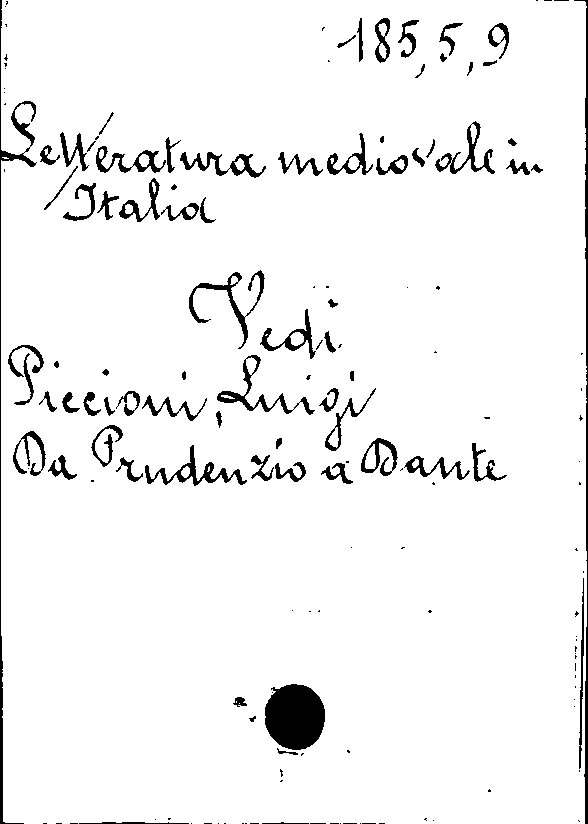 185,5,9
Letteratura medioevale in
Italia
Vedi
Piccioni, Luigi
Da Prudenzio a Dante